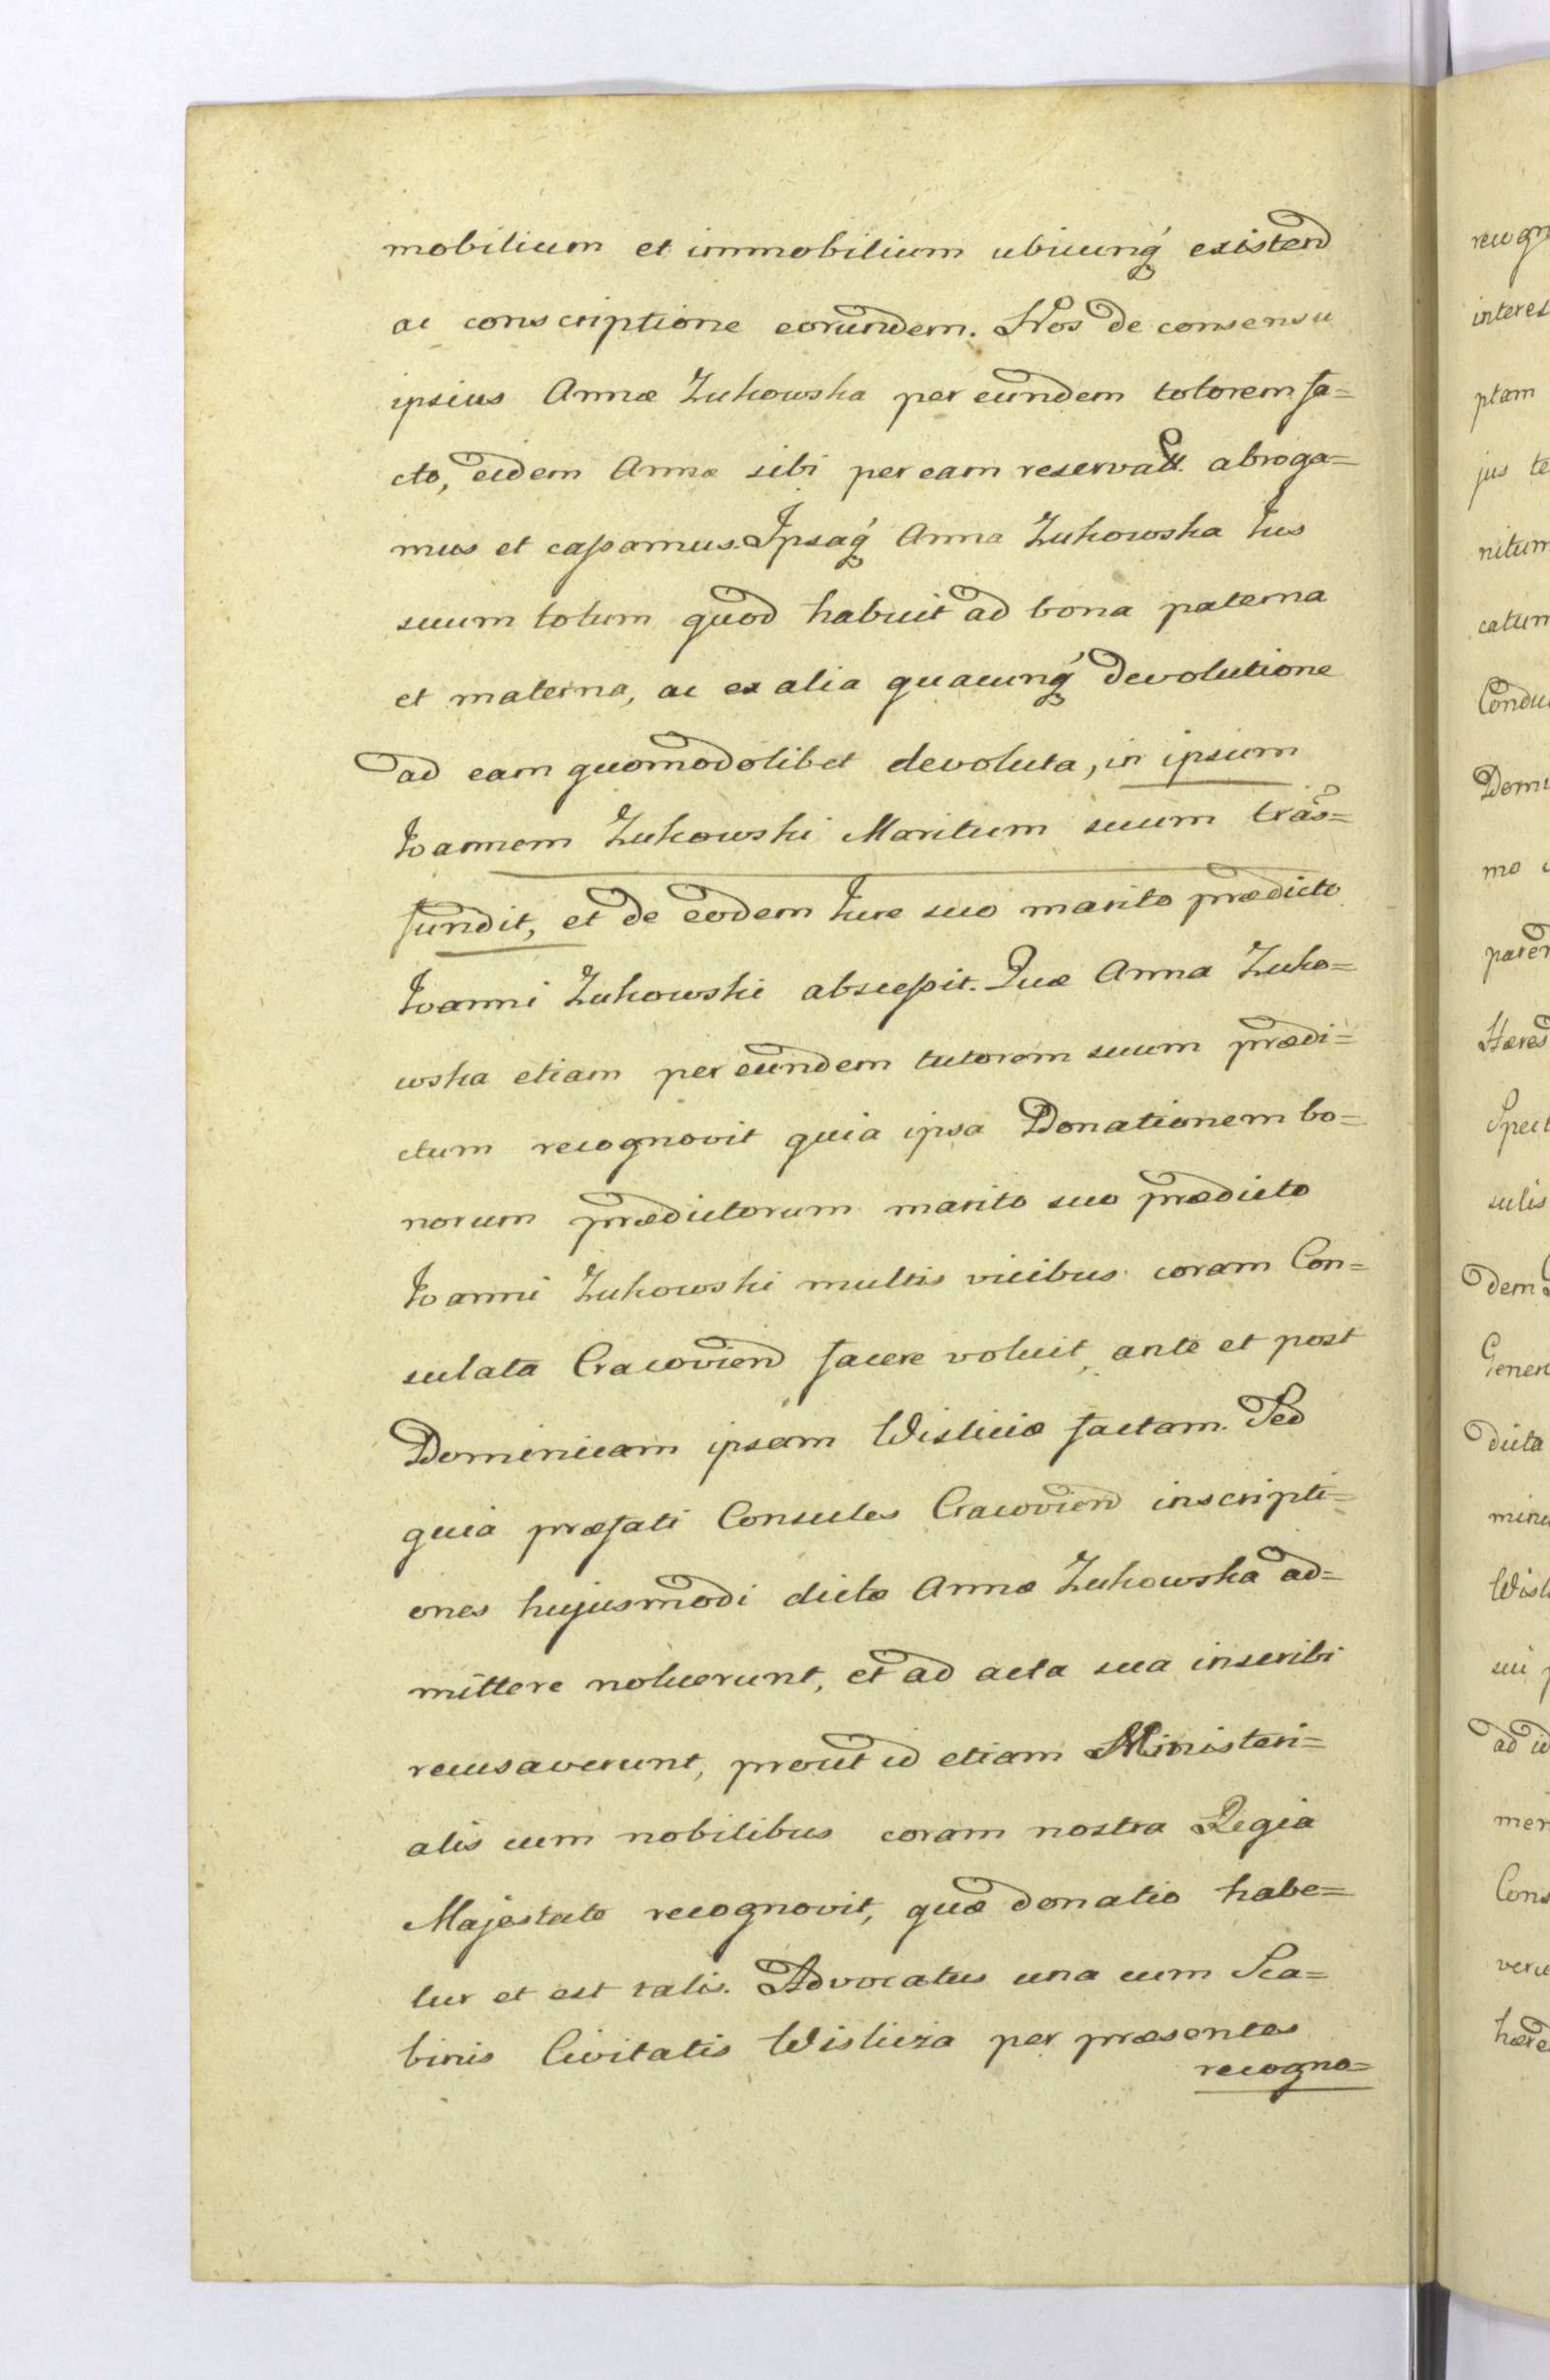 mobilium et immobilium ubicunq́ existend
ac conscriptione eorundem. Nos de consensu
ipsius Annæ Zukowska per eundem totorem fa=
cto, eidem Annæ sibi per eam reservatt. abroga=
mus et cassamus. Ipsaq́ Anna Zukowska Jus
suum totum quod habuit ad bona paterna
et materna, ac ex alia quacunq́ devolutione
ad eam quomodolibet devoluta, in ipsum
Joannem Zukowski Maritum suum trãs=
fundit, et de eodem Jure suo marito prædicto
Joanni Zukowski abscessit. Quæ Anna Zuko=
wska etiam per eundem tutorem suum prædi=
ctum recognovit quia ipsa Donationem bo=
norum prædictorum marito suo prædicto
Joanni Zukowski multis vicibus coram Con=
sulata Cracovien facere voluit, ante et post
Dominicam ipsam Wisliciæ factam. Sed
quia præfati Consules Cracovien inscripti=
ones hujusmodi dictæ Annæ Zukowska ad=
mittere noluerunt, et ad acta sua inscribi
recusaverunt, prout id etiam Ministeri=
alis cum nobilibus coram nostra Regia
Majestate recognovit, quæ donatio habe=
tur et est talis. Advocatus una cum Sca=
binis Civitatis Wislicza per præsentes
recogno=
recogn
interes
ptam
jus te
nitum
catum
Condu
Domi
mo
paren
Hæred
Spect
sulis
dem
Gener
dicta
minu
Wisl
sui
ad id
mer
Cons
veru
hære